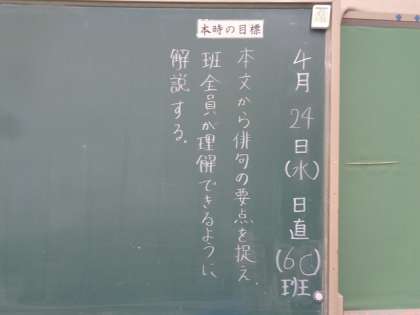 4月24日(水)日直(6C)班
本時の目標
本文から俳句の要点を捉え、
班全員が理解できるように
解説する。